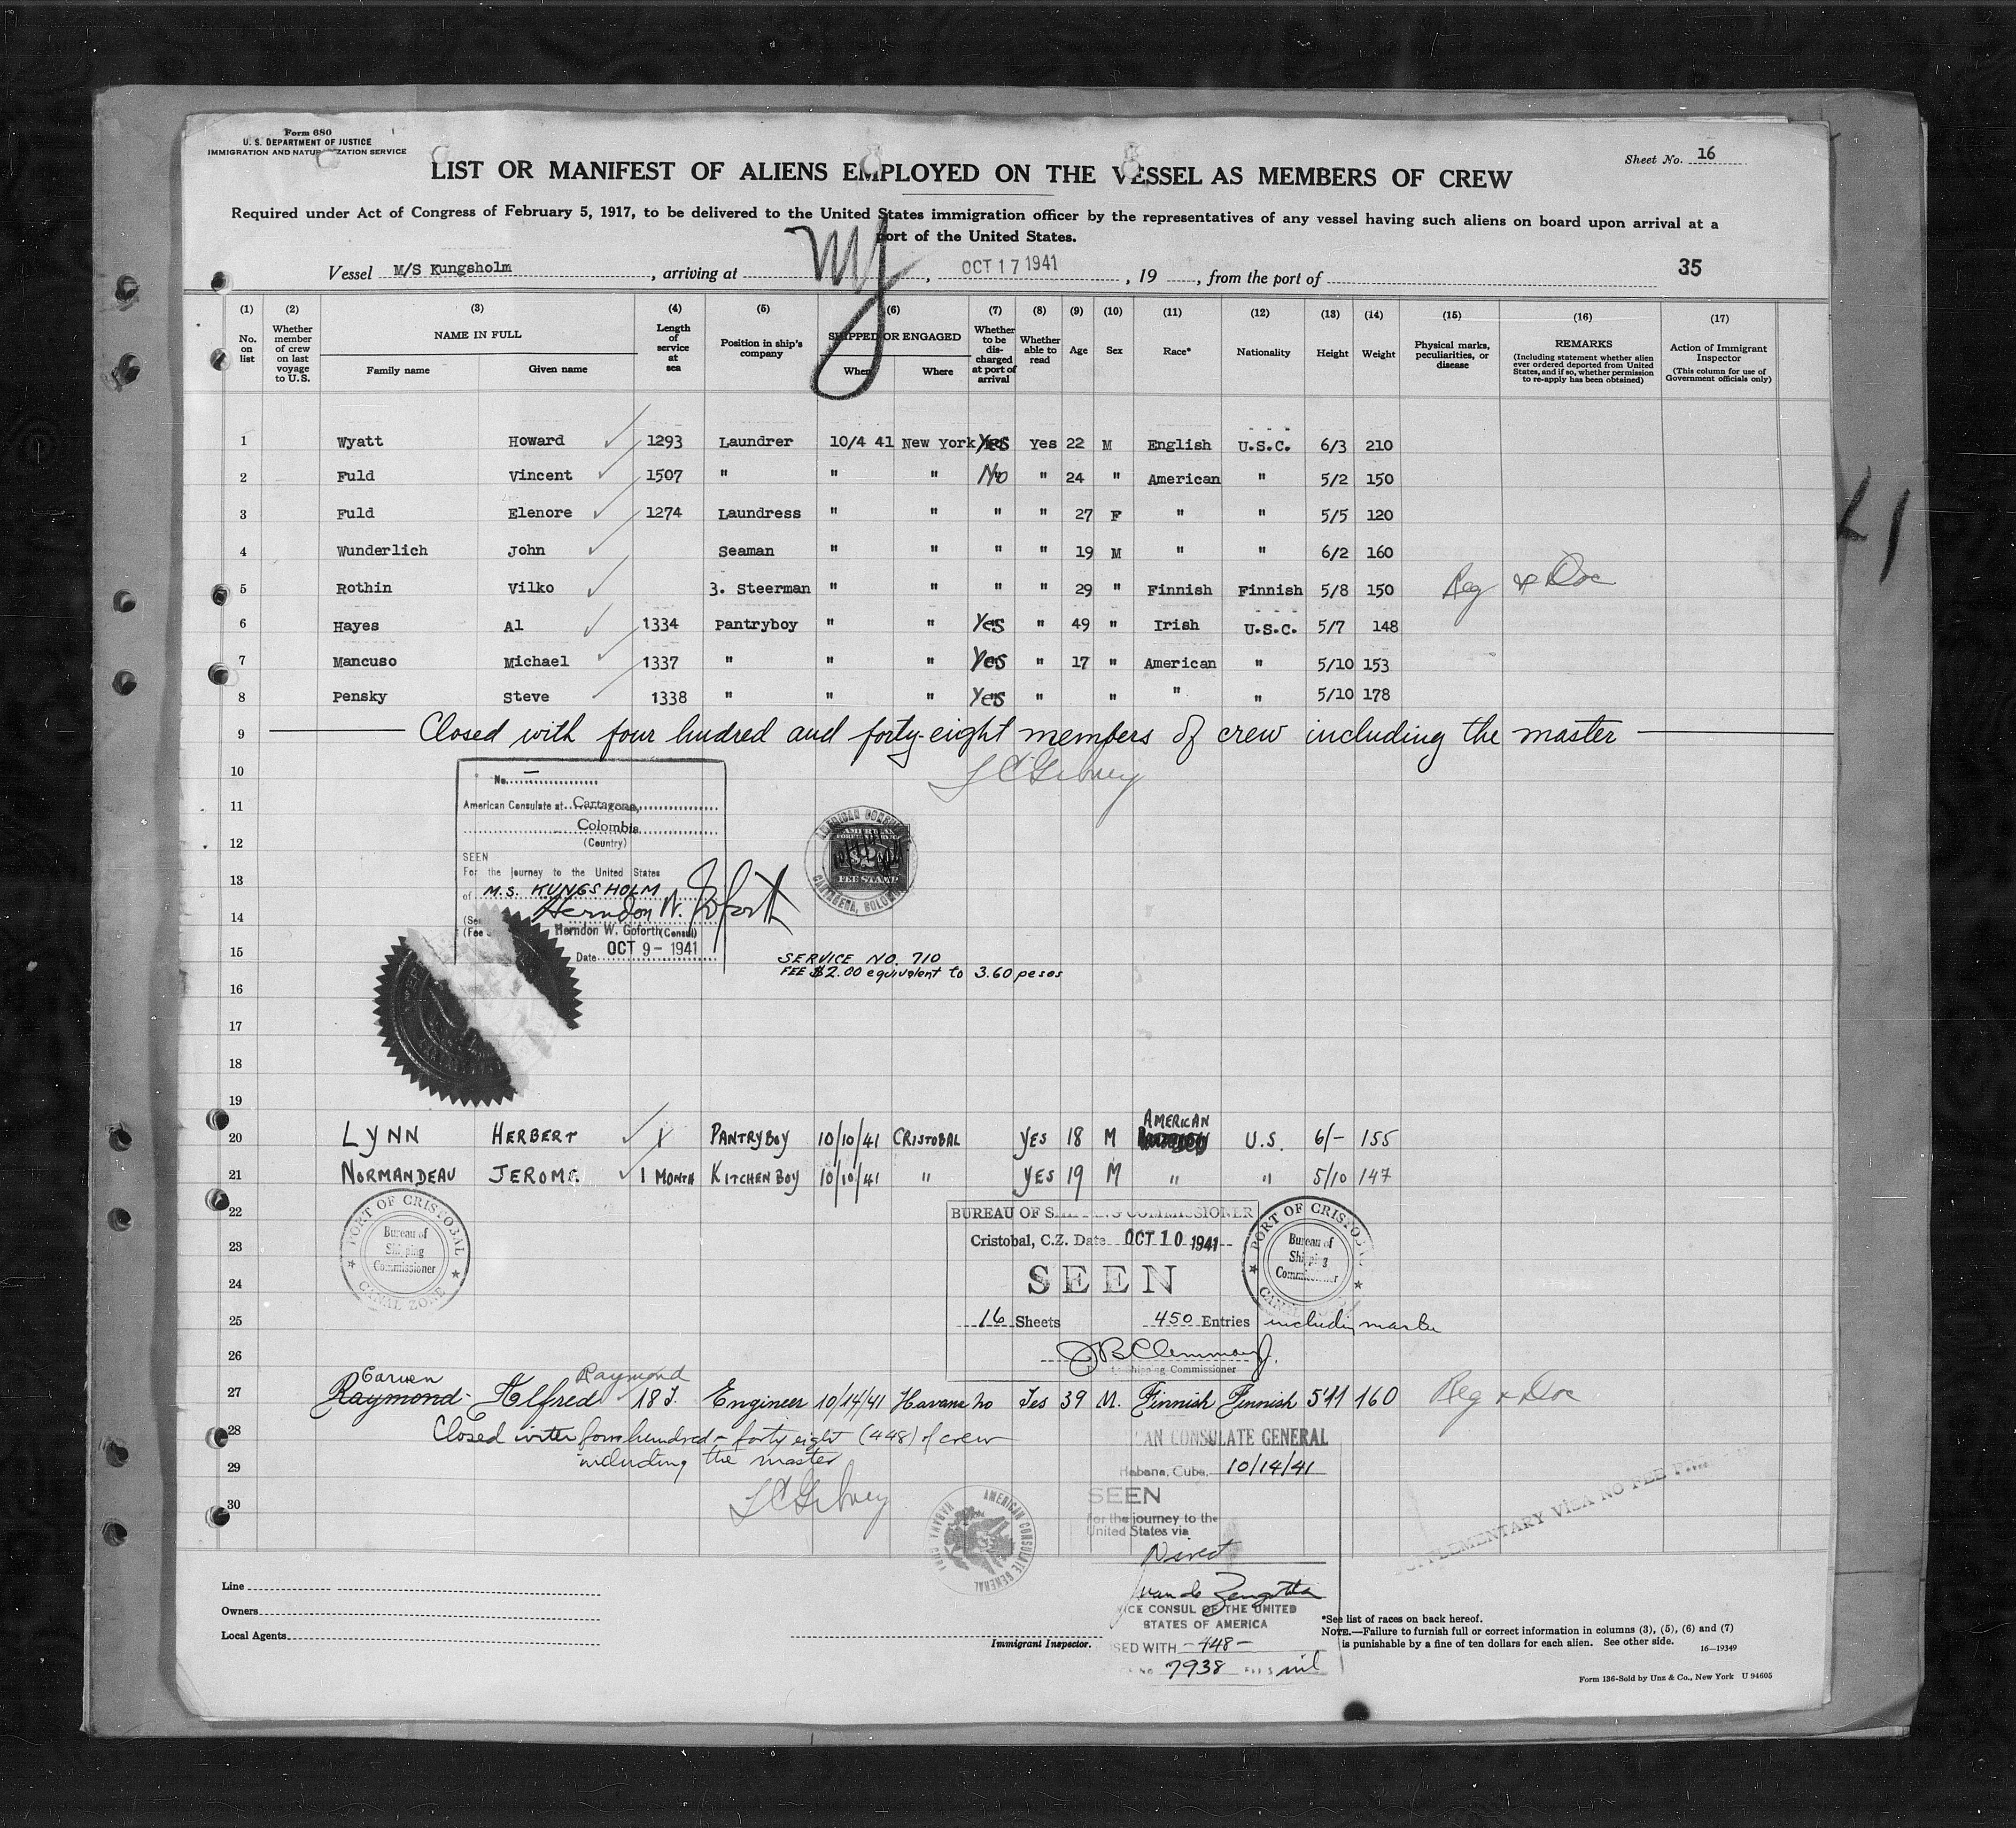 Form 680
U. S. DEPARTMENT OF JUSTICE
IMMIGRATION AND NATURALIZATION SERVICE
Sheet No. 16
LIST OR MANIFEST OF ALIENS EMPLOYED ON THE VESSEL AS MEMBERS OF CREW
Required under Act of Congress of February 5, 1917, to be delivered to the United States immigration officer by the representatives of any vessel having such aliens on board upon arrival at a
port of the United States.
Vessel M/S Kungsholm, arriving at NY, OCT 17 1941, 19, from the port of
35
(1) (2) (3) (4) (5) (6) (7) (8) (9) (10) (11) (12) (13) (14) (15) (16) (17)
No. on list
Whether member of crew on last voyage to U.S.
NAME IN FULL
Family name Given name
Length of service at sea
Position in ship's company
SHIPPED OR ENGAGED
When Where
Whether to be discharged at port of arrival
Whether able to read
Age
Sex
Race*
Nationality
Height
Weight
Physical marks, peculiarities, or disease
REMARKS
(Including statement whether alien ever ordered deported from United States, and if so, whether permission to re-apply has been obtained)
Action of Immigrant Inspector
(This column for use of Government officials only)
1 Wyatt Howard 1293 Laundrer 10/4 41 New York Yes Yes 22 M English U.S.C. 6/3 210
2 Fuld Vincent 1507 " " " No " 24 " American " 5/2 150
3 Fuld Elenore 1274 Laundress " " " " 27 F " " 5/5 120
4 Wunderlich John Seaman " " " " 19 M " " 6/2 160
5 Rothin Vilko 3. Steerman " " " " 29 " Finnish Finnish 5/8 150 Reg & Doc
6 Hayes Al 1334 Pantryboy " " Yes " 49 " Irish U.S.C. 5/7 148
7 Mancuso Michael 1337 " " " Yes " 17 " American " 5/10 153
8 Pensky Steve 1338 " " " Yes " " " " 5/10 178
9 Closed with four hudred and forty-eight members of crew including the master
10
No.
11 American Consulate at Cartagena,
Colombia
12 (Country)
SEEN
For the journey to the United States
13 of M.S. KUNGSHOLM
14 Herndon W. Goforth
Herndon W. Goforth (Consul)
15 Date OCT 9 - 1941
AMERICAN CONSULATE
AMERICAN
FOREIGN SERVICE
FEE STAMP
CARTAGENA, COLOMBIA
SERVICE NO. 710
FEE $2.00 equivalent to 3.60 pesos
16
17
18
19
20 LYNN HERBERT PANTRYBOY 10/10/41 CRISTOBAL YES 18 M AMERICAN U.S. 6/- 155
21 NORMANDEAU JEROME 1 MONTH KITCHEN BOY 10/10/41 " YES 19 M " " 5/10 147
22
23
24
25
26
PORT OF CRISTOBAL
Bureau of
Shipping
Commissioner
CANAL ZONE
BUREAU OF SHIPPING COMMISSIONER
Cristobal, C.Z. Date OCT 10 1941
SEEN
16 Sheets 450 Entries including master
Shipping Commissioner
PORT OF CRISTOBAL
Bureau of
Shipping
Commissioner
Raymond
27 Raymond Alfred 18 J. Engineer 10/14/41 Havana no Yes 39 M. Finnish Finnish 5'11 160 Reg & Doc
28 Closed with four hundred - forty eight (448) of crew
29 including the master
30
AMERICAN CONSULATE GENERAL
HABANA CUBA
AN CONSULATE GENERAL
Habana, Cuba, 10/14/41
SEEN
for the journey to the
United States via
Direct
VICE CONSUL OF THE UNITED
STATES OF AMERICA
SED WITH -448-
No 7938 nil
SUPPLEMENTARY VISA NO FEE
Line
Owners
Local Agents
Immigrant Inspector.
*See list of races on back hereof.
NOTE.—Failure to furnish full or correct information in columns (3), (5), (6) and (7)
is punishable by a fine of ten dollars for each alien. See other side.
16—19349
Form 136-Sold by Unz & Co., New York U 94605